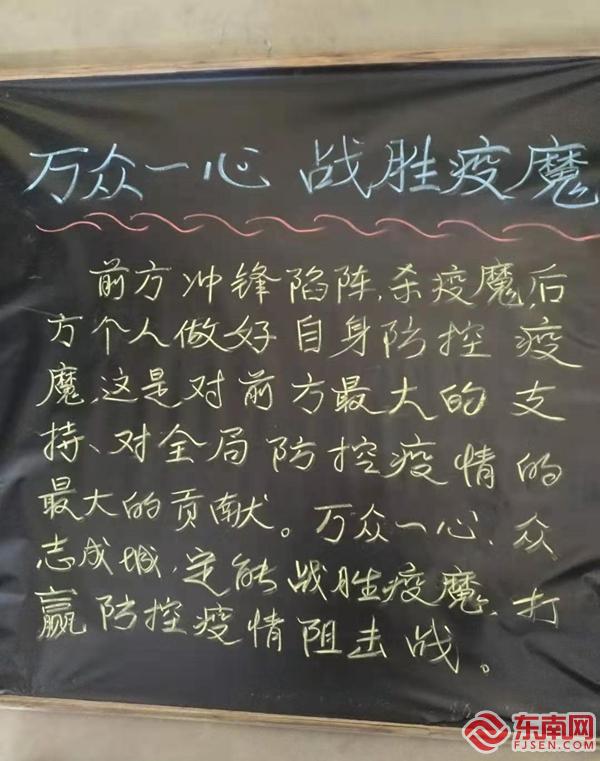 万众一心 战胜疫魔
前方冲锋陷阵,杀疫魔后
方个人做好自身防控疫
魔,这是对前方最大的支
持、对全局防控疫情的
最大的贡献。万众一心、众
志成城,定能战胜疫魔,打
赢防控疫情阻击战。
东南网
FJSEN.COM